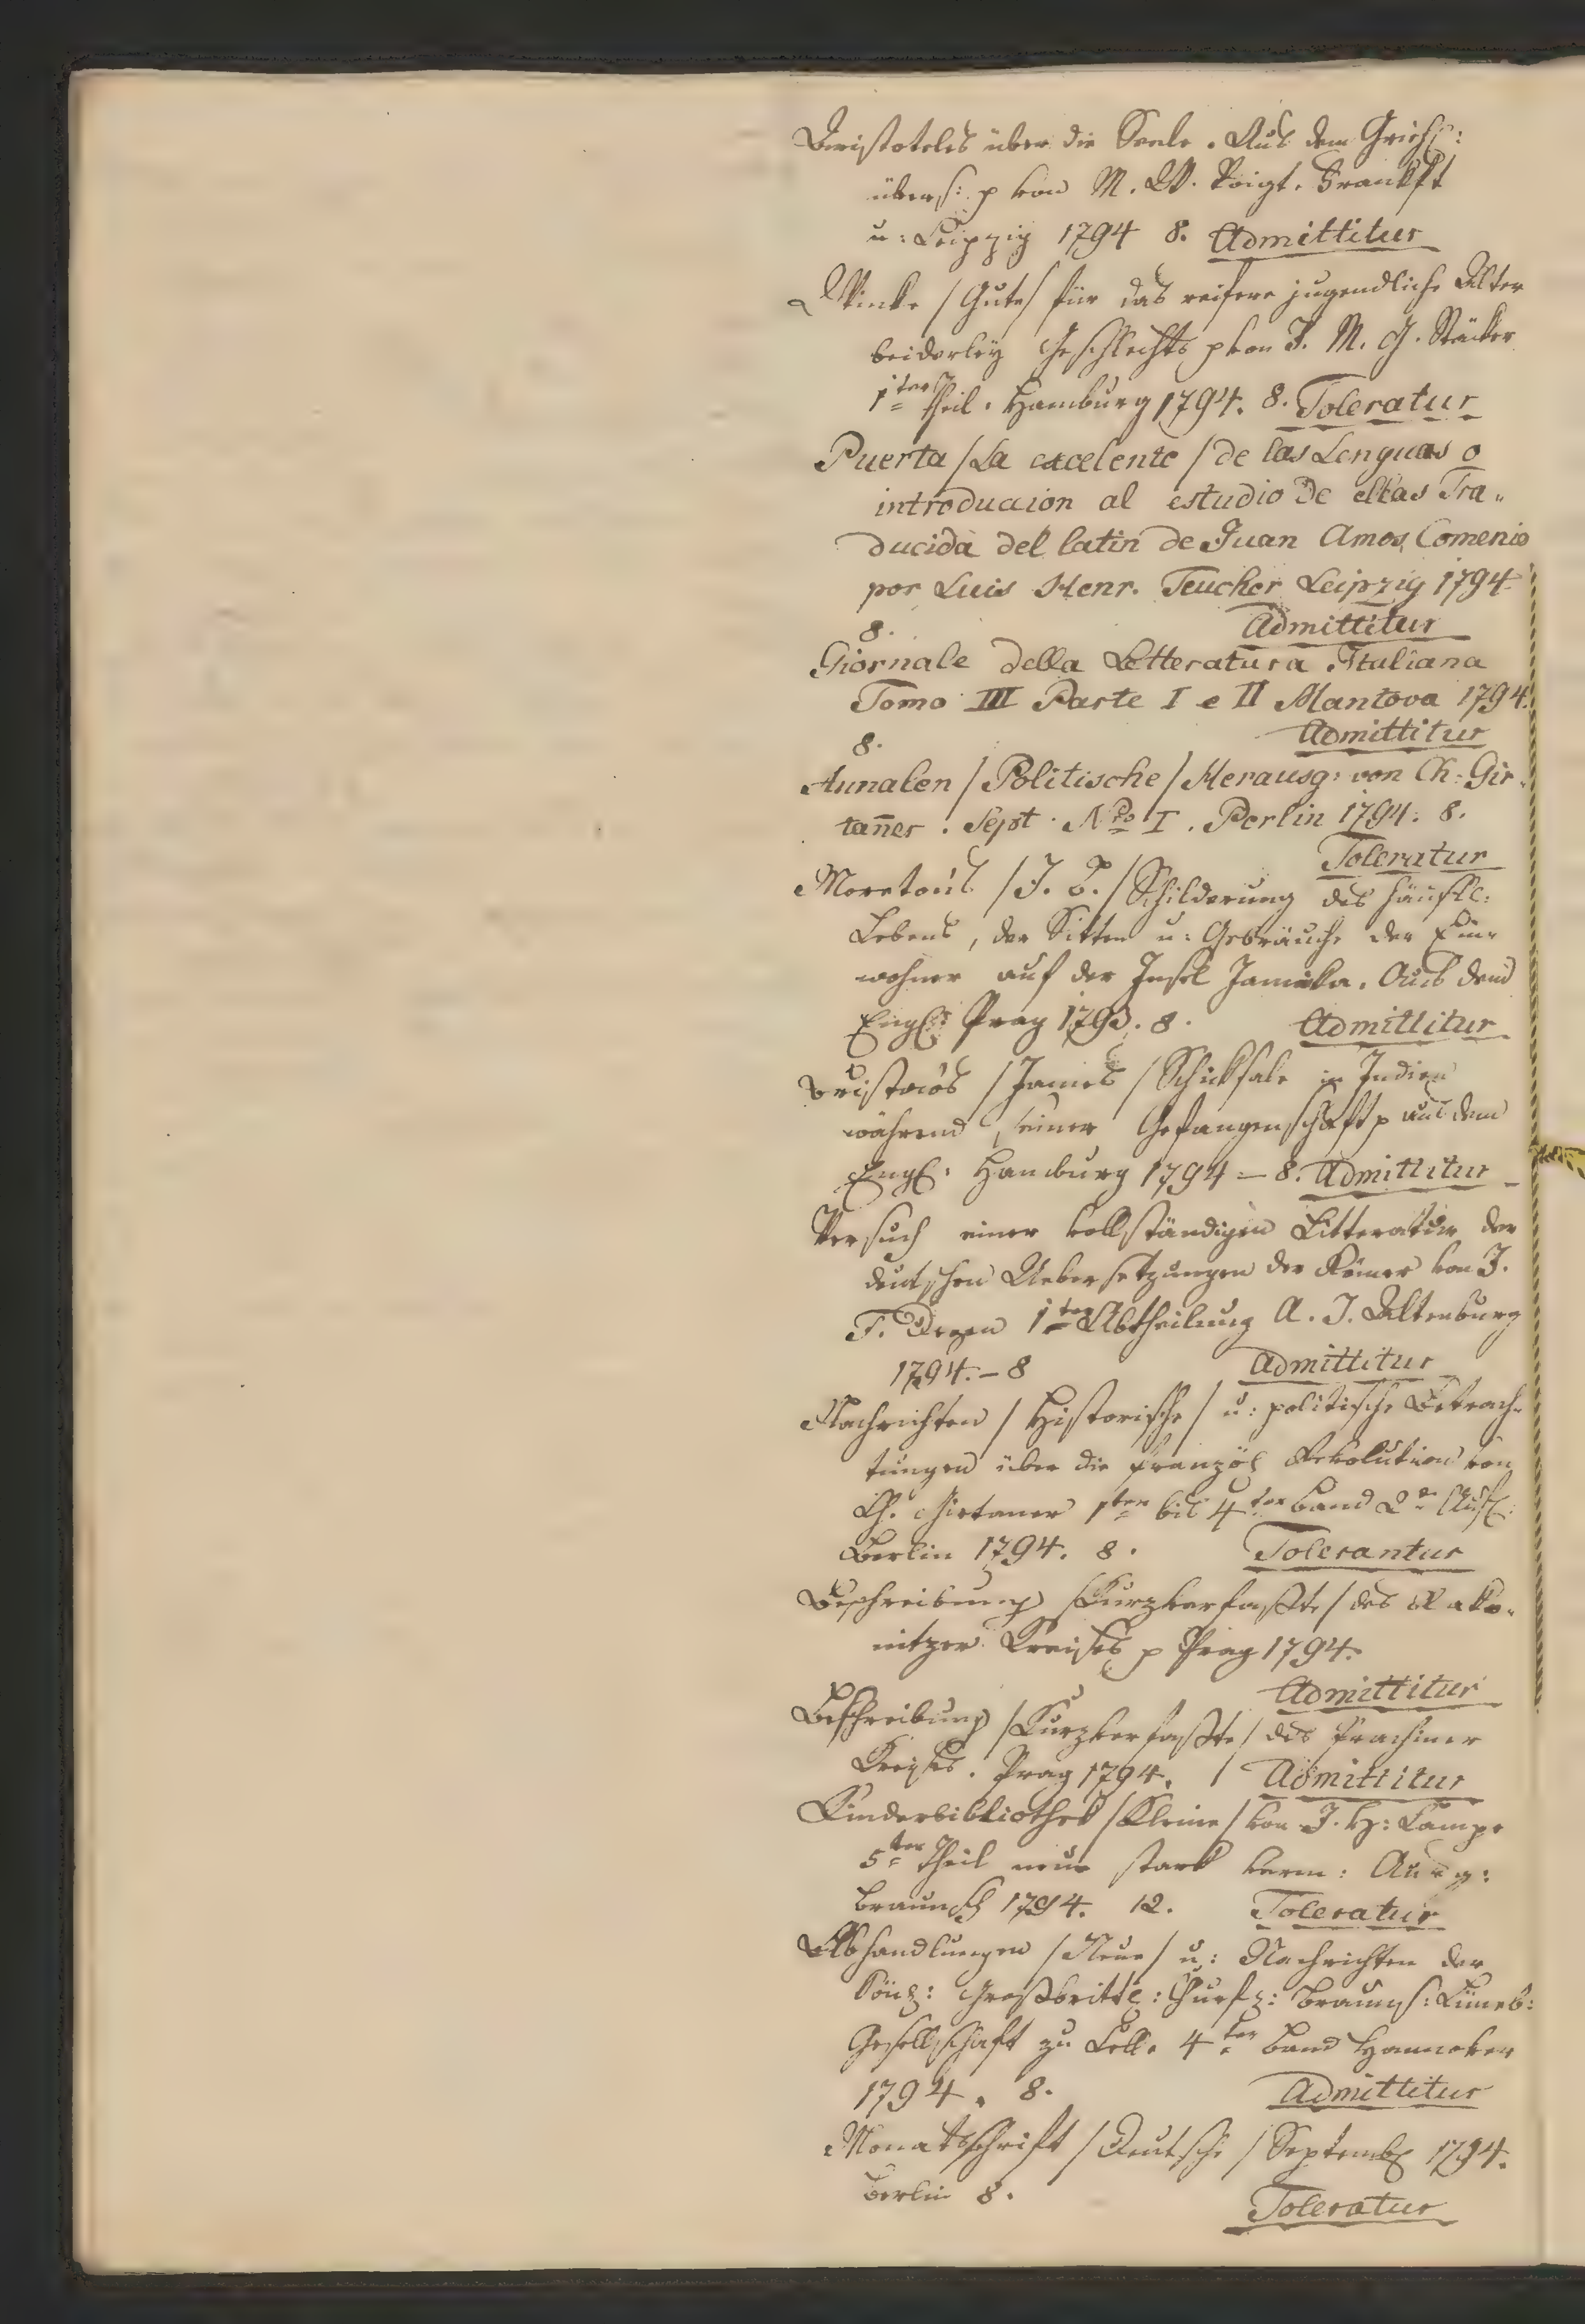 Aristoteles über die Seele. Aus dem Griech:
übers: p von M. W. Voigt. Frankft
u: Leipzig 1794 8. Admittitur
Winke /Gute/ für das reifere jugendliche Alter
beiderley Geschlechts p von J. M. G. Stäcker
1ter Theil. Hamburg 1794. 8. Toleratur
Puerta /La excelente/ de las Lenguas o
introduccion al estudio de ellas Tra„
ducida del latin de Juan Amos Comenio
por Luis Henr. Teucher Leipzig 1794
8. Admittitur
Giornale della Letteratura Italiana
Tomo III Parte I e II Mantova 1794.
8. Admittitur
Annalen /Politische/ Herausg: von Ch: Gir„
tan̄er. Sept. Nro I. Berlin 1794. 8.
Toleratur
Moretons /J. B./ Schilderung des häusl:
Lebens, der Sitten u: Gebräuche der Ein„
wohner auf der Insel Jamaika. Aus dem
Engl: Prag 1793. 8. Admittitur
Bristow's /James/ Schicksale in Indien
während seiner Gefangenschaft p aus dem
Engl: Hamburg 1794 – 8. Admittitur
Versuch einer vollständigen Litteratur der
deutschen Uebersetzungen der Römer von J.
F. Degen 1te Abtheilung A. J. Altenburg
1794. – 8 Admittitur
Nachrichten /Historische/ u: politische Betrach„
tungen über die französ Revolution von
Ch. Girtaner 1ter bis 4ter Band 2e Aufl:
Berlin 1794. 8. Tolerantur
Beschreibung /Kurzverfaßte/ des Rako„
nitzer Kreises p Prag 1794.
Admittitur
Beschreibung /Kurzverfaßte/ des Prachiner
Kreises. Prag 1794. / Admittitur
Kinderbibliothek /Kleine/ von J. H: Campe
5ter Theil neue stark verm: Ausg:
Braunsch 1794. 12. Toleratur
Abhandlungen /Neue/ u: Nachrichten der
Köngl: Großbritt: Churf: Braunschs: Lüneb:
Gesellschaft zu Celle 4ter Band Hannover
1794. 8. Admittitur
Monatsschrift /Deutsche/ Septemb 1794.
Berlin 8.
Toleratur